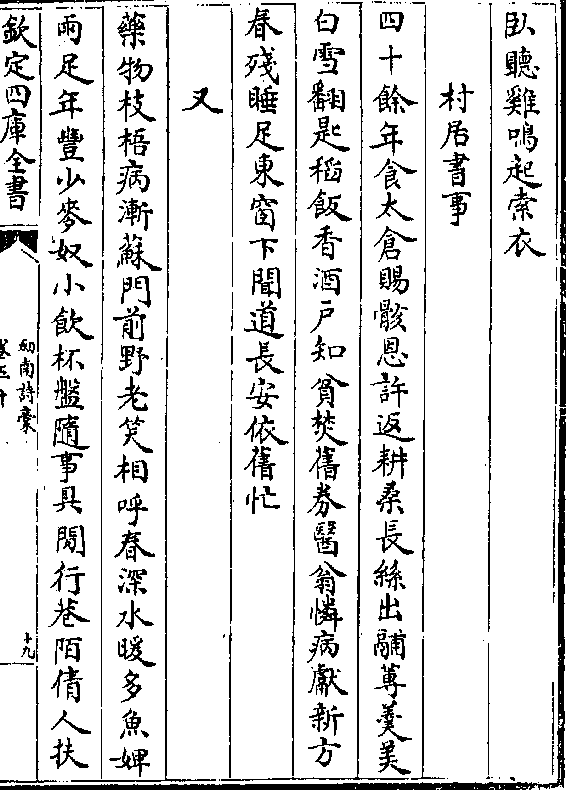 臥聽雞鳴起索衣
村居書事
四十餘年食太倉賜骸恩許返耕桑長絲出鬴蓴羮美
白雪翻匙稻飯香酒戶知貧焚舊券醫翁憐病獻新方
春殘睡足東窗下聞道長安依舊忙
又
藥物枝梧病漸蘇門前野老笑相呼春深水暖多魚婢
雨足年豐少麥奴小飲杯盤隨事具閒行巷陌倩人扶
欽定四庫全書
劒南詩稾
卷五十
十九